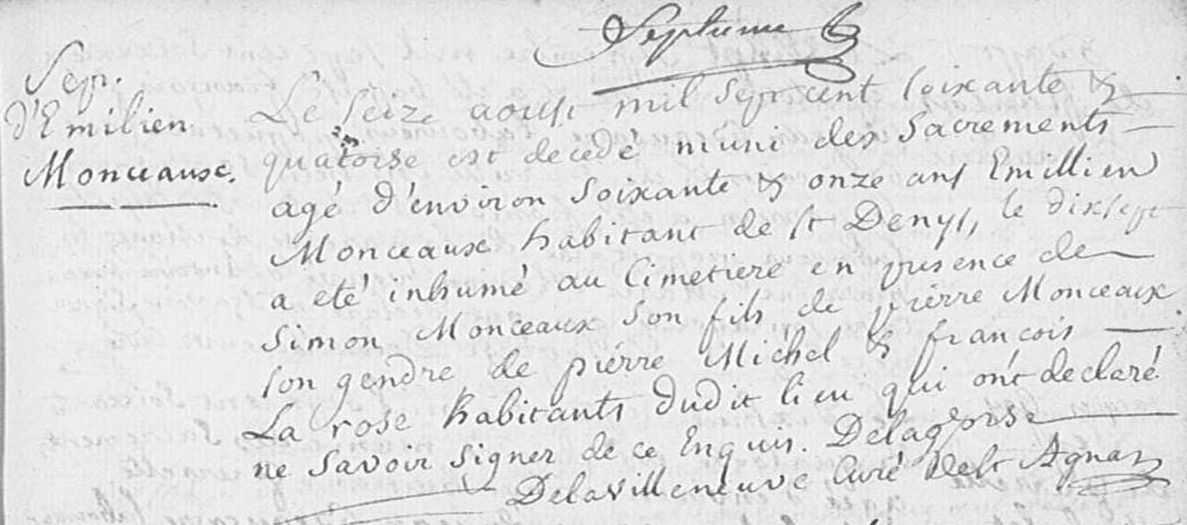 Septieme
Sep.
d'Emilien
Monceaux.
Le seize aoust mil sept cent soixante &
quatorse est decedé muni des Sacrements
agé d'environ soixante & onze ans Emillien
Monceaux habitant de st Denys, le dixsept
a eté inhumé au Cimetiere en presence de
Simon Monceaux son fils de pierre Monceaux
son gendre de pierre Michel & francois
La rose habitants dudit lieu qui ont declaré
ne savoir signer de ce Enquis.
Delavilleneuve Curé de st Agnan